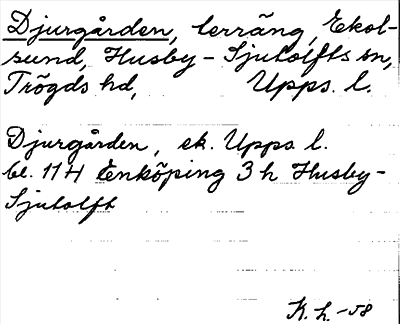 Djurgården, terräng, Ekol-
sund, Husby-Sjutolfts sn,
Trögds hd, Upps. l.
Djurgården, ek. Upps. l.
bl. 114 Enköping 3 h Husby-
Sjutolft
K. L. -58